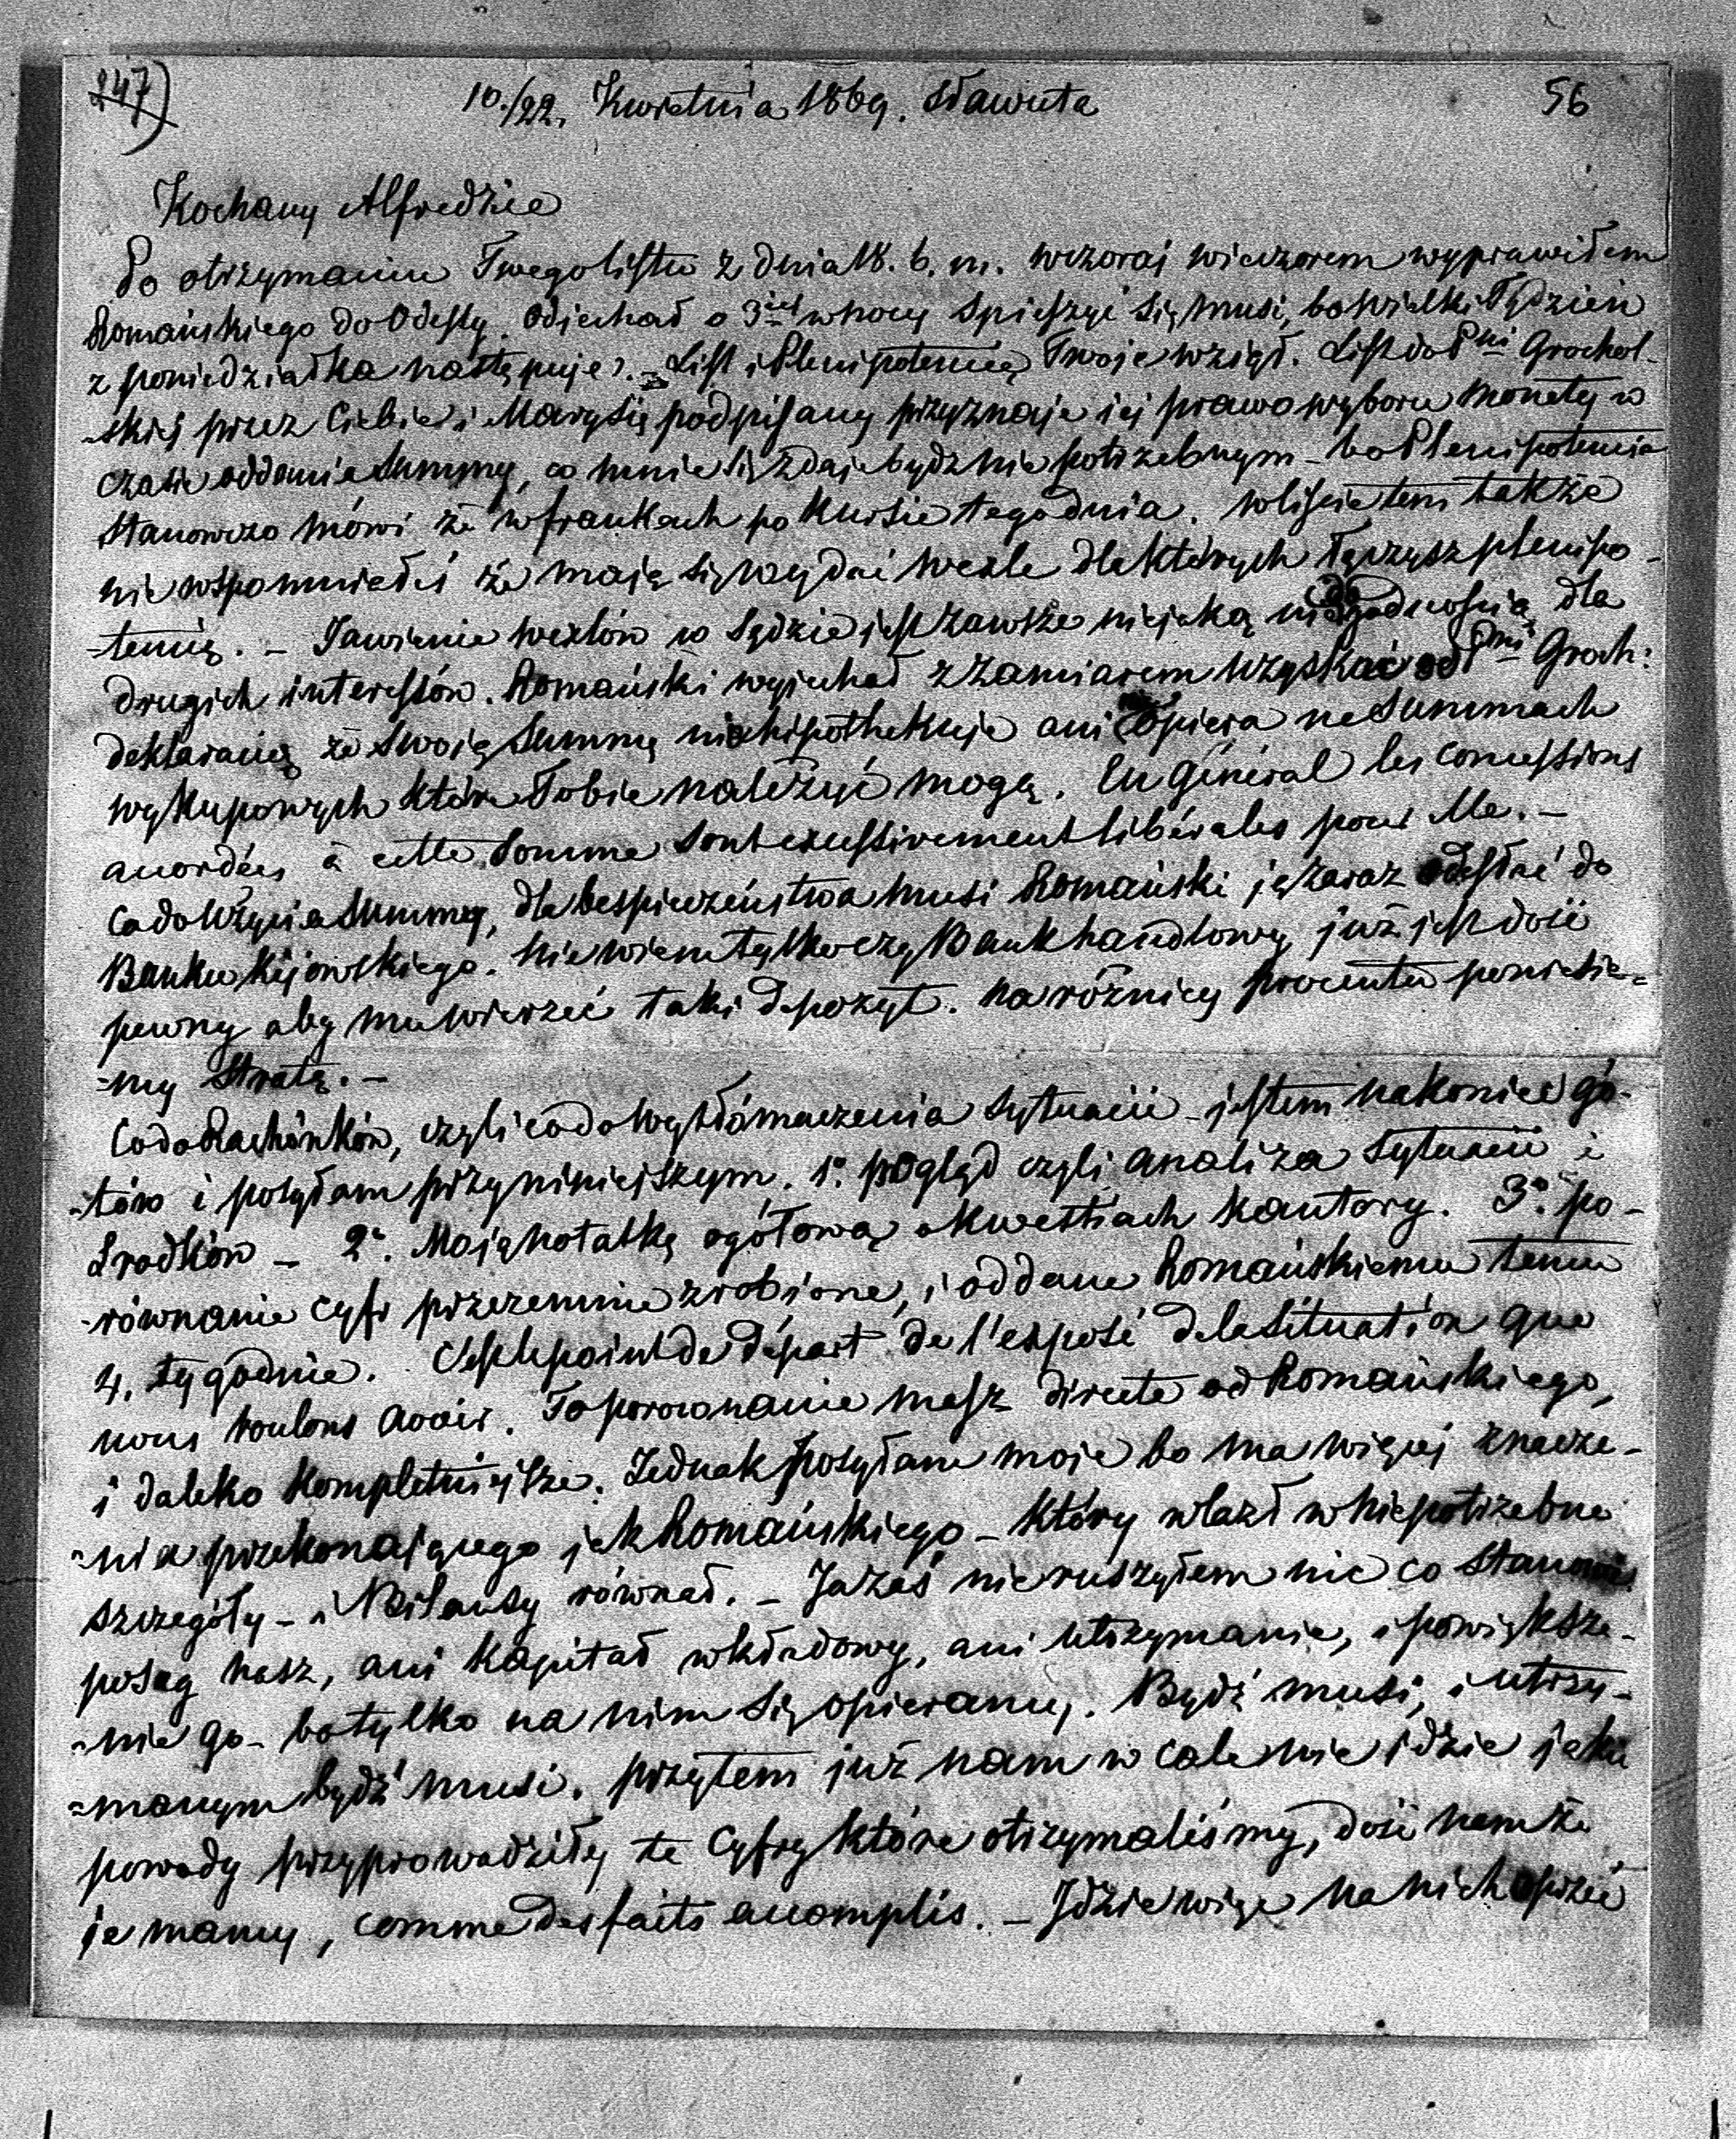 247)
10./22. Kwietnia 1869. Sławuta
56
Kochany Alfredzie
Po otrzymaniu Twego listu z dnia 18. b. m. wczoraj wieczorem wyprawiłem
Romańskiego do Odessy. Odjechał o 3ciej w nocy spieszyć się musi, bo wielki Tydzień
z poniedziałka następuje. – List i Plenipotencię Twoje wziął. List do Pni Grochol-
-skiej przez Ciebie i Marysię podpisany przyznaje jej prawo wyboru monety w
czasie oddania Summy, co mnie się zdaje bydz nie potrzebnym – bo Plenipotencia
stanowczo mówi że w frankach po kursie tego dnia. W liście tem także
nie wspomniałeś że mają się wydać wexle dla których łączysz plenipo-
-tencię. – Jawienie wexlów w Sądzie jest zawsze niejaką niedogodnością dla
drugich interessów. Romański wyjechał z zamiarem uzyskać od Pni Groch:
deklaracię że swoię Summę nie hipothekuje ani opiera na Summach
wykupowych które Tobie należyć mogą. En général les concessions
accordées à cette Somme sont excessivement libérales pour Me. –
Co do wzięcia Summy, dla bespieczeństwa musi Romański ją zaraz odesłać do
Banku Kijowskiego. Nie wiem tylko czy Bank handlowy już jest dość
pewny aby mu wierzeć taki depozyt. Na różnicy procentu poniesie-
-my stratę. –
Co do Rachónków, czyli co do wytłómaczenia sytuacii – jestem nakoniec go-
-tów i posyłam przy niniejszym. 1o pogląd czyli analiza sytuacii i
Srodków – 2o. Moją notatkę ogółową o kwestiach kantory. 3o. po-
-równanie cyfr przezemnie zrobione, i oddane Romańskiemu temu
4. tygodnie. C'est le point de départ de l'exposé de la situation que
nous voulons avoir. To porownanie masz directe od Romańskiego,
i daleko kompletniejsze. Jednak posyłam moje bo ma więcej znacze-
-nia przekonającego jak Romańskiego – który wlazł w niepotrzebne
szczegóły – i Bilansy równał. – Ja zaś nie ruszyłem nic co stanowi
posag nasz, ani kapitał wkładowy, ani utrzymanie, i powiększe-
-nie go – bo tylko na nim się opieramy. Bydź musi, i utrzy-
-manym bydź musi. przytem już nam w cale nie idzie jakie
powody przyprowadziły te Cyfry które otrzymaliśmy, dość nam że
je mamy, comme des faits accomplis. – Idzie więc na nich oprzeć